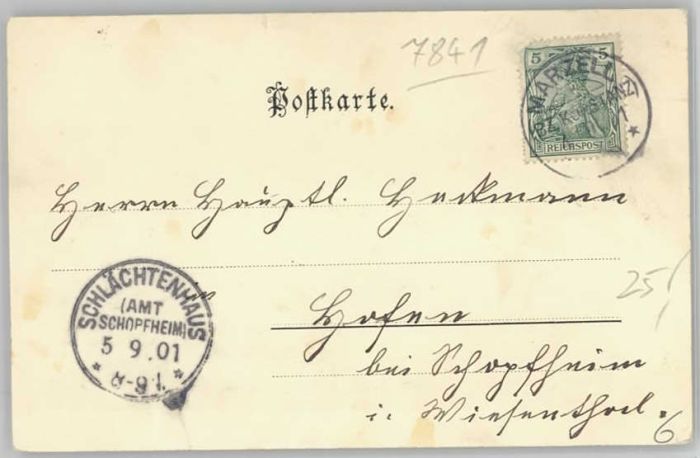 7841
Postkarte.
5 5
REICHSPOST
MARZELL
(BZ. KONSTANZ)
Herrn Hauptl. Hackmann
in
Hofen
bei Schopfheim
i. Wiesenthal.
SCHLÄCHTENHAUS
(AMT
SCHOPFHEIM)
5 9.01
25
6